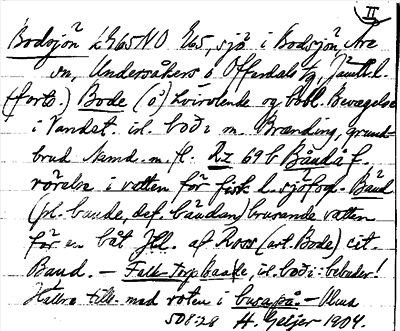 II
Bodsjön LÄ65NO Ä65, sjö i Bodsjön, Åre
sn, Undersåkers o Offerdals tg, Jämtl. l.
(forts.) Bode (å) hvirvlende og bobl. Bevægelse
i Vandet. isl. boði m. Brænding, grund-
brud m. fl. Rz 69 b Båudå f.
rörelse i vatten för fisk l. sjöfog. Båud
(pl. baude, def. båudan) brusande vatten
för en båt Jtl. af Ross (art. Bode) cit.
Baud. — Falk-Torp baa, isl. boði: bebuder!
Hällre till. med roten i busa på. —
508:28 H. Geijer 1904.